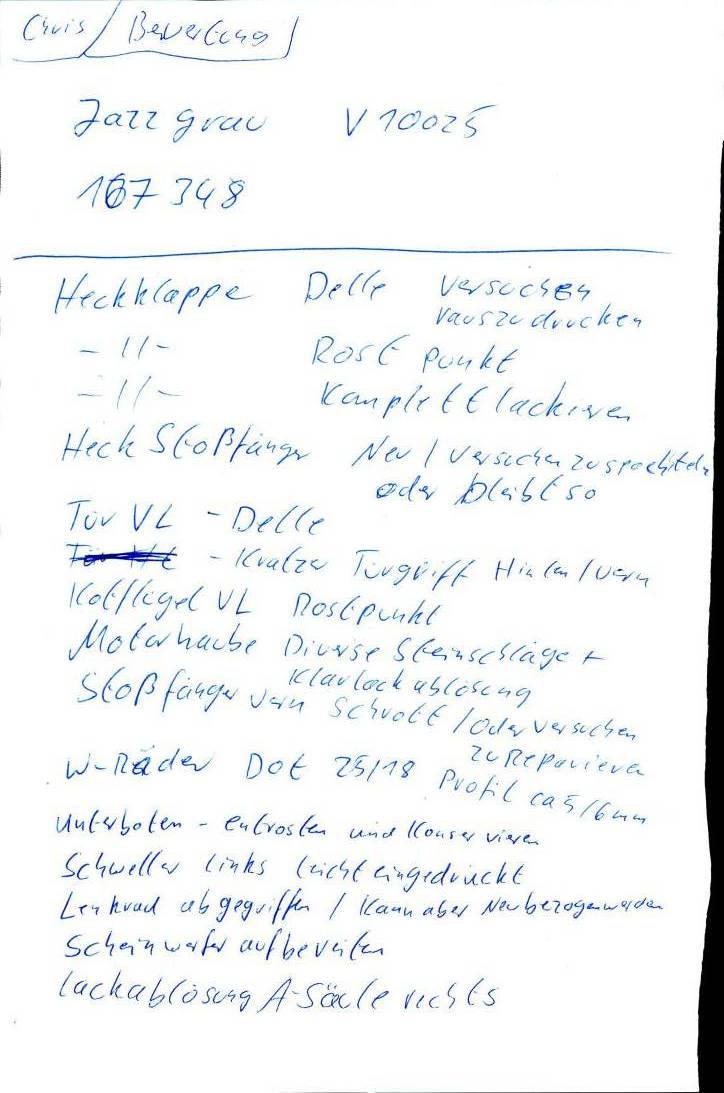 Chris / Bewertung
Jazz grau V10025
167 348
Heckklappe Delle versuchen
rauszudrücken
- 11 - Rost punkt
- 11 - Komplett lackieren
Heck Stoßfänger Neu / versuchen zu spachteln
oder bleibt so
Tür VL - Delle
- Kratzer Türgriff Hinten / vorn
Kotflügel VL Rostpunkt
Motorhaube Diverse Steinschläge +
Klarlackablösung
Stoßfänger vorn Schrott / oder versuchen
zu Reparieren
W-Räder Dot 25/18 Profil ca 5/6mm
Unterboten - entrosten und Konservieren
Schweller links leicht eingedrückt
Lenkrad abgegriffen / Kann aber Neu bezogen werden
Scheinwerfer aufbereiten
Lackablösung A-Säule rechts